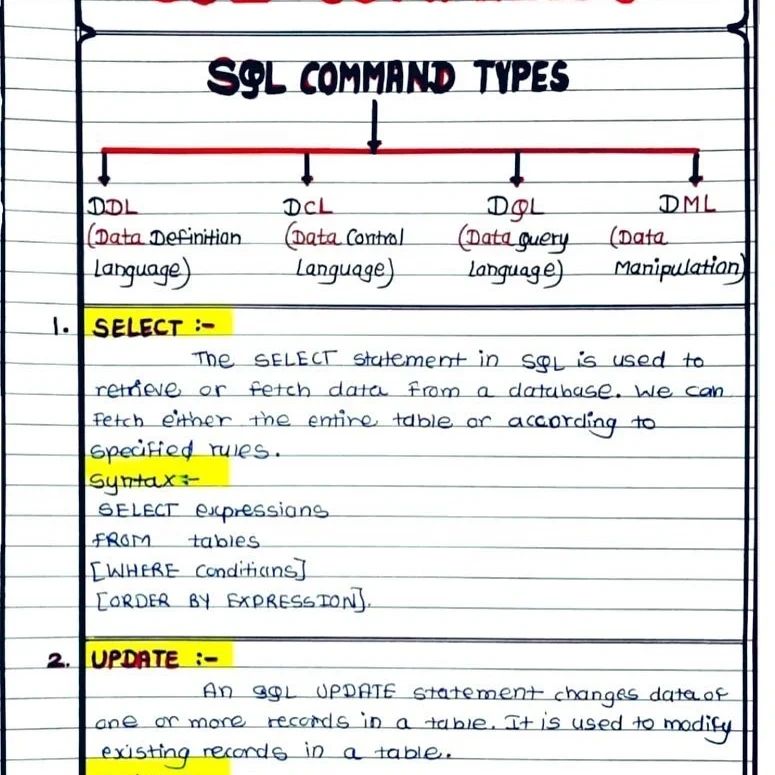 SQL COMMAND TYPES
DDL DCL DQL DML
(Data Definition (Data Control (Data query (Data
Language) Language) Language) Manipulation)
1. SELECT :-
The SELECT statement in SQL is used to
retrieve or fetch data from a database. We can
fetch either the entire table or according to
specified rules.
Syntax:-
SELECT expressions
FROM tables
[WHERE conditions]
[ORDER BY EXPRESSION].
2. UPDATE :-
An SQL UPDATE statement changes data of
one or more records in a table. It is used to modify
existing records in a table.